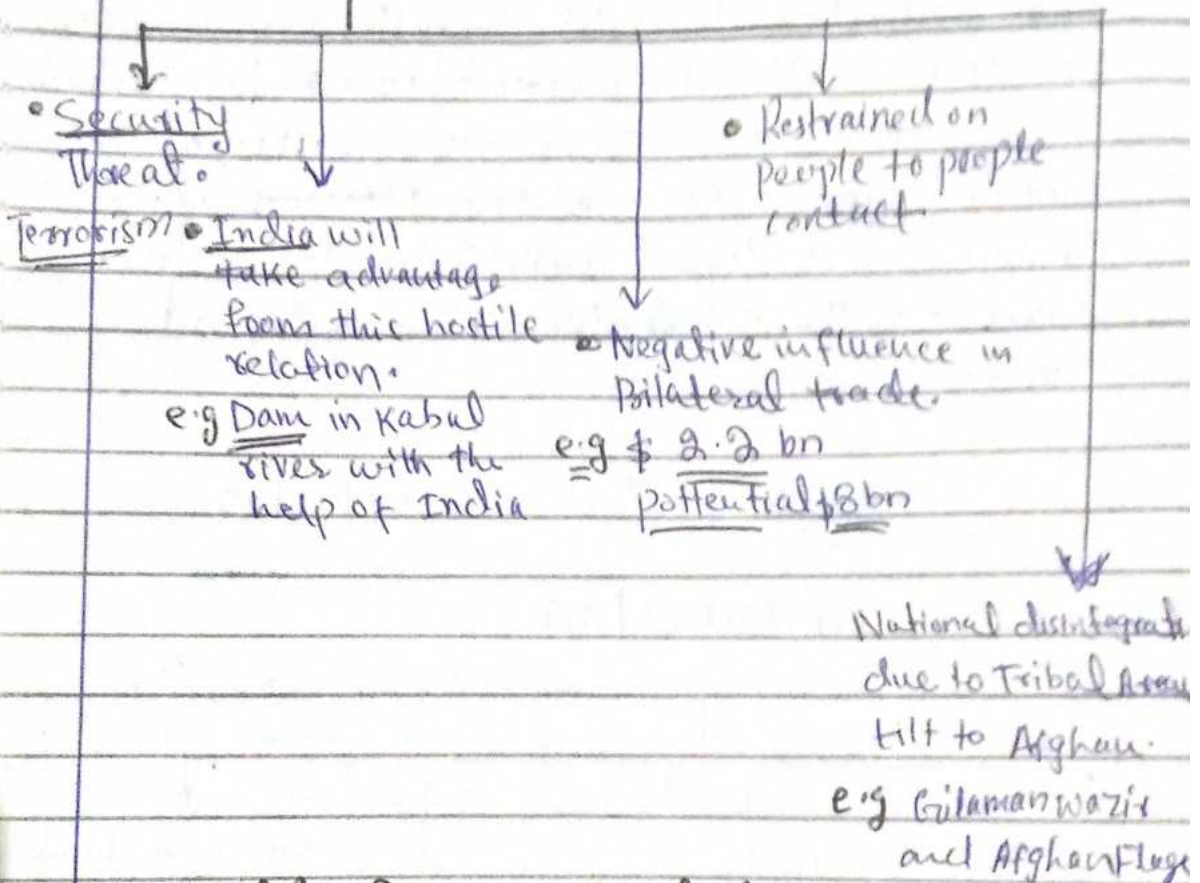 • Security
Threat.
Terrorism
• India will
take advantage
from this hostile
relation.
e.g Dam in Kabul
river with the
help of India
• Negative influence in
Bilateral trade.
e.g $ 2.2 bn
pottential $8bn
• Restrained on
people to people
contact.
National disintegrati
due to Tribal Areas
tilt to Afghan.
e.g Gilaman wazir
and Afghan Flage